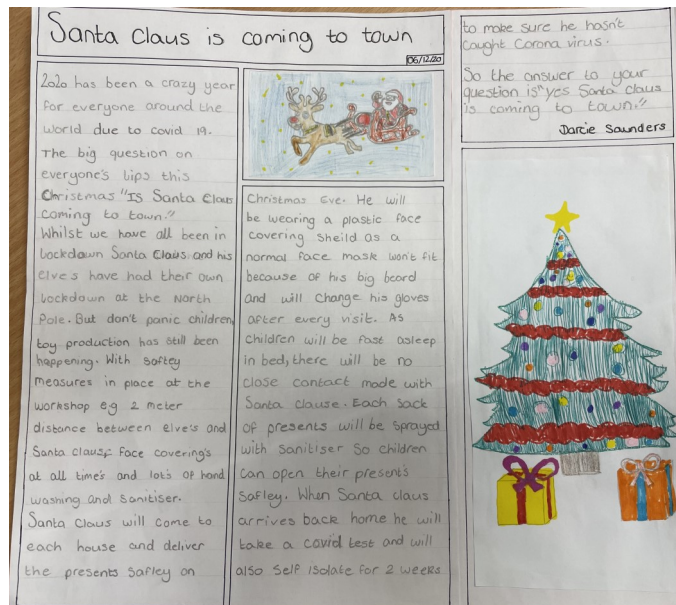 Santa Claus is coming to town
06/12/20
2020 has been a crazy year
for everyone around the
world due to covid 19.
The big question on
everyone's lips this
Christmas "Is Santa Claus
coming to town."
Whilst we have all been in
lockdown Santa Claus and his
elve's have had their own
lockdown at the North
Pole. But don't panic children,
toy production has still been
happening. With saftey
measures in place at the
workshop e.g 2 meter
distance between elve's and
Santa claus, face covering's
at all time's and lot's of hand
washing and sanitiser.
Santa Claus will come to
each house and deliver
the presents safley on
Christmas Eve. He will
be wearing a plastic face
covering sheild as a
normal face mask won't fit
because of his big beard
and will change his gloves
after every visit. As
children will be fast asleep
in bed, there will be no
close contact made with
Santa clause. Each sack
of presents will be sprayed
with sanitiser so children
can open their presents
safley. When Santa claus
arrives back home he will
take a covid test and will
also self isolate for 2 weeks
to make sure he hasn't
caught Corona virus.
So the answer to your
question is "yes Santa claus
is coming to town."
Darcie Saunders